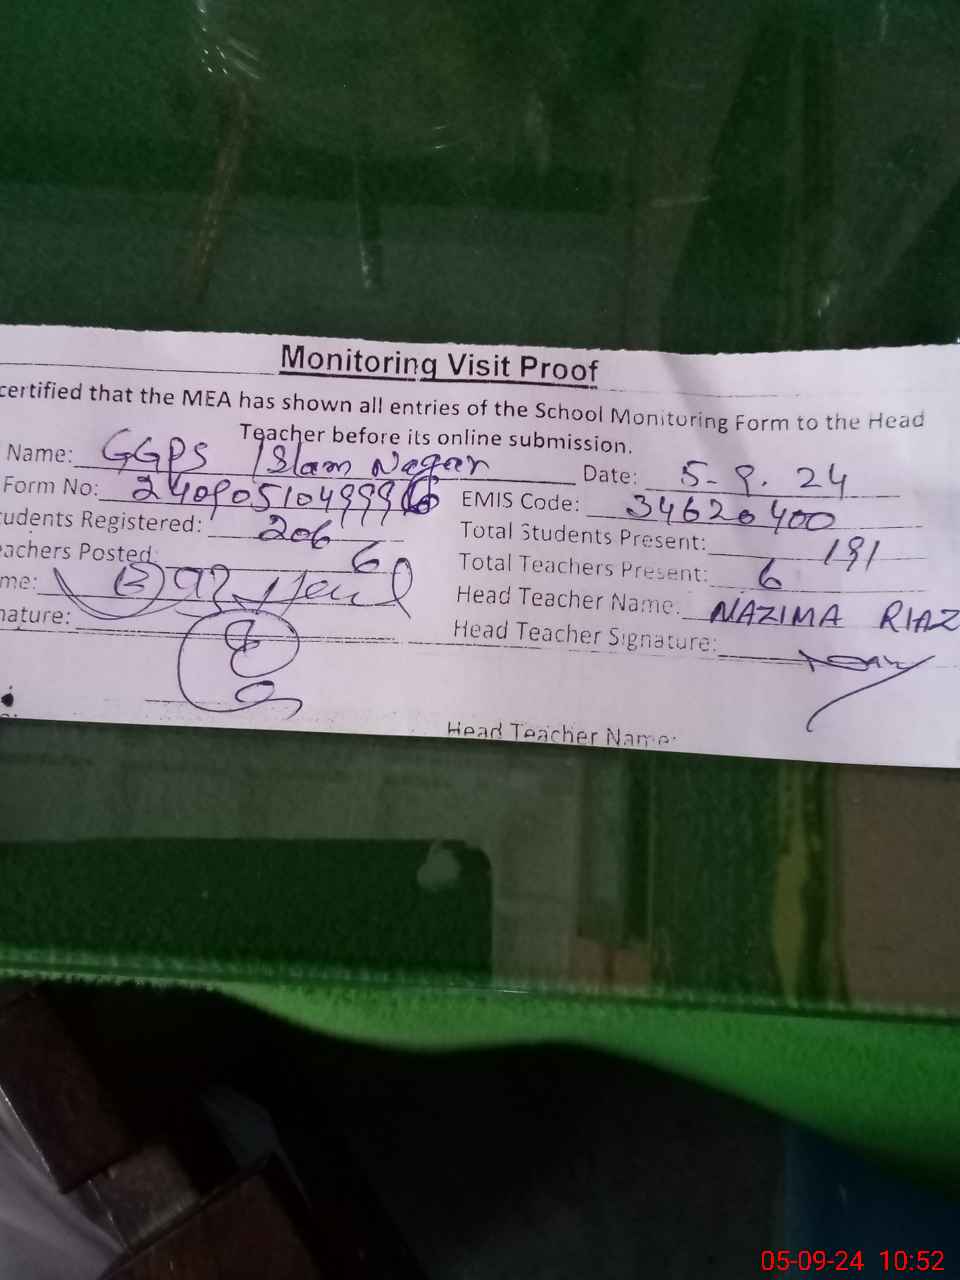 Monitoring Visit Proof
certified that the MEA has shown all entries of the School Monitoring Form to the Head
Teacher before its online submission.
Name: GGPS Islam Nagar Date: 5-9.24
Form No: EMIS Code: 34620400
udents Registered: 206 Total Students Present: 191
eachers Posted: 6 Total Teachers Present: 6
me: Head Teacher Name: NAZIMA RIAZ
nature: Head Teacher Signature:
Head Teacher Name:
05-09-24 10:52